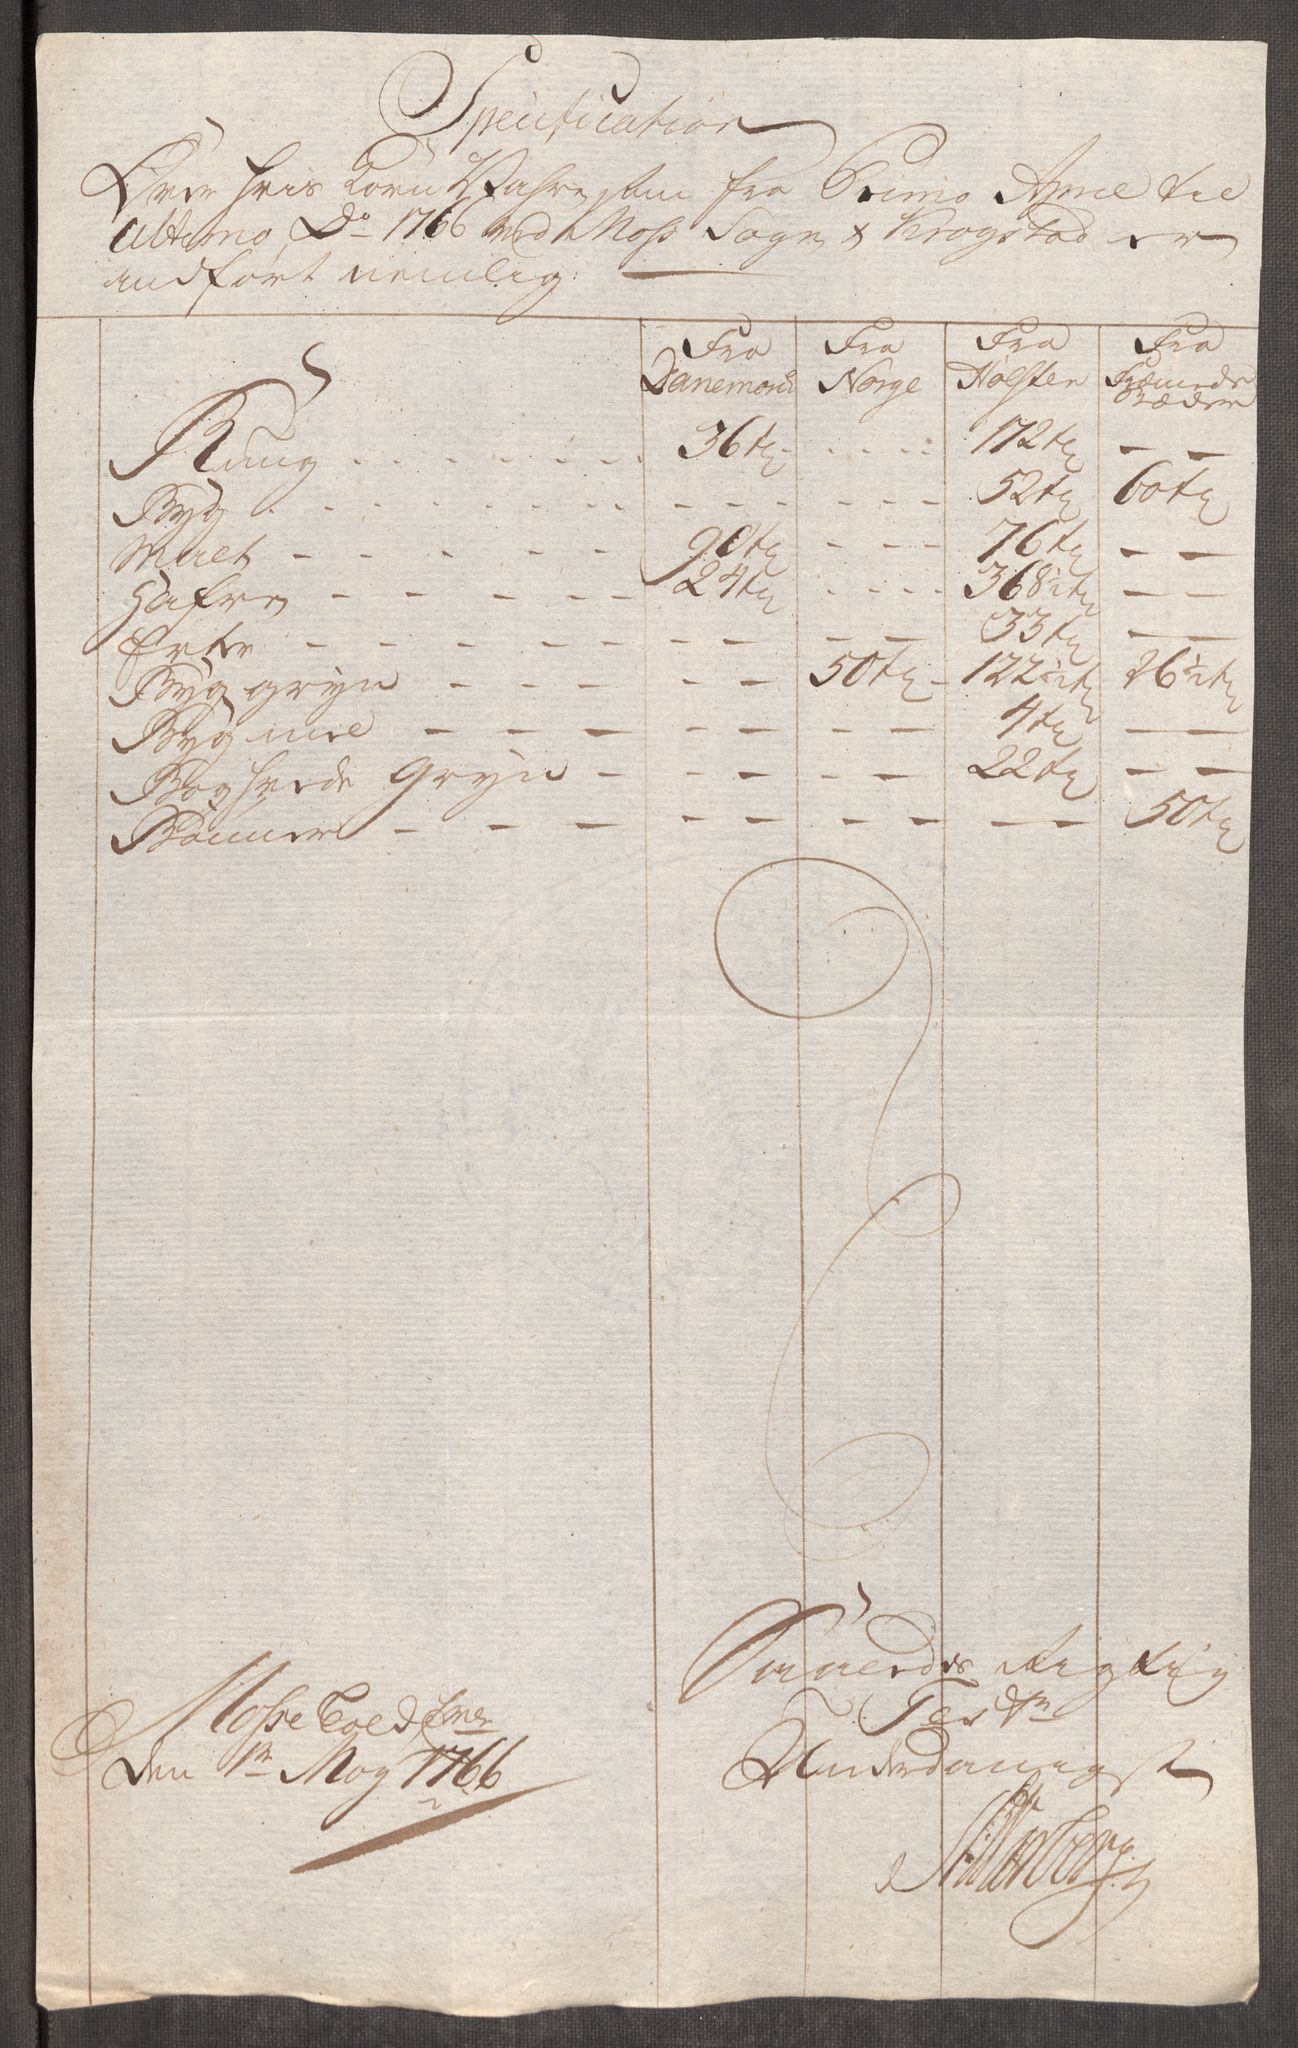 Specification
Over hvis Korn Vahre som fra Primo April til
Ultimo Do 1766 ved Moss Sogn & Krogstad er
indført nemlig
Fra Danemark Fra Norge Fra Holsten Fra Fremede Stæder
Rug 36 tr - 172 tr -
Byg - - 52 tr 60 tr
Malt 90 tr - 76 tr -
Hafre 24 tr - 368½ tr -
Erter - - 33 tr -
Byg gryn - 50 tr 122½ tr 26½ tr
Byg meel - - 4 tr -
Boghvede Gryn - - 22 tr -
Bønner - - - 50 tr
Saaledes rigtig
Mosse Told
Testr
den 1te May 1766
Underdanigst